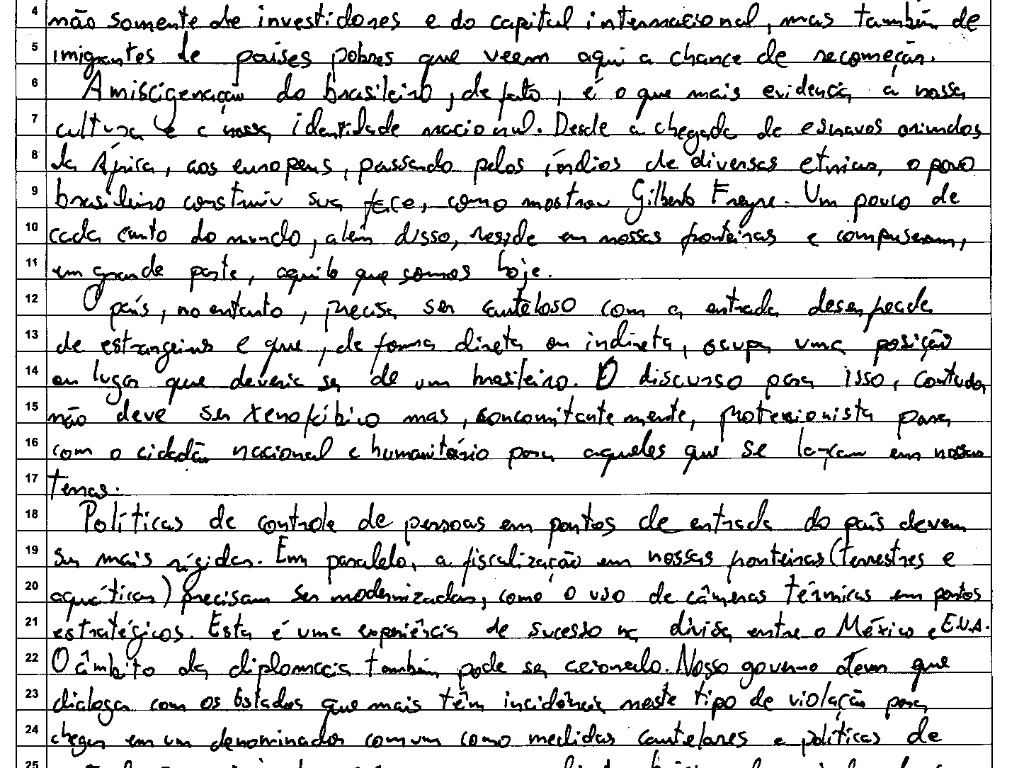 4 não somente de investidores e do capital internacional, mas também de
5 imigrantes de países pobres que veem aqui a chance de recomeçar.
6 A miscigenação do brasileiro, de fato, é o que mais evidencia a nossa
7 cultura e a nossa identidade nacional. Desde a chegada de escravos oriundos
8 da África, aos europeus, passando pelos índios de diversas etnias, o povo
9 brasileiro construiu sua face, como mostrou Gilberto Freyre. Um pouco de
10 cada canto do mundo, além disso, reside em nossas fronteiras e compuseram,
11 em grande parte, aquilo que somos hoje.
12 O país, no entanto, precisa ser cauteloso com a entrada desenfreada
13 de estrangeiros e que, de forma direta ou indireta, ocupa uma posição
14 ou lugar que deveria ser de um brasileiro. O discurso para isso, contudo,
15 não deve ser xenofóbico mas, concomitantemente, protecionista para
16 com o cidadão nacional e humanitário para aqueles que se lançam em nossas
17 terras.
18 Políticas de controle de pessoas em pontos de entrada do país devem
19 ser mais rígidas. Em paralelo, a fiscalização em nossas fronteiras (terrestres e
20 aquáticas) precisam ser modernizadas, como o uso de câmeras térmicas em pontos
21 estratégicos. Esta é uma experiência de sucesso na divisa entre o México e E.U.A.
22 O âmbito da diplomacia também pode ser acionado. Nosso governo tem que
23 dialogar com os Estados que mais têm incidência neste tipo de violação para
24 chegar em um denominador comum como medidas cautelares e políticas de
25